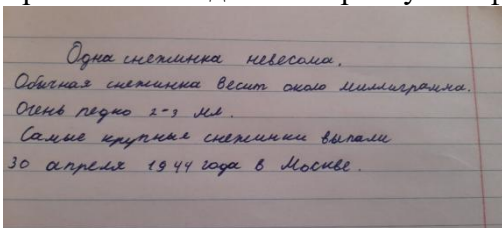 Одна снежинка невесома.
Обычная снежинка весит около миллиграмма.
Очень редко 2-3 мл.
Самые крупные снежинки выпали
30 апреля 1944 года в Москве.